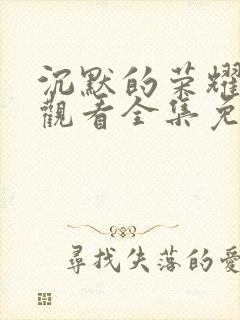 沉默的荣耀
觀看全集免
尋找失落的愛